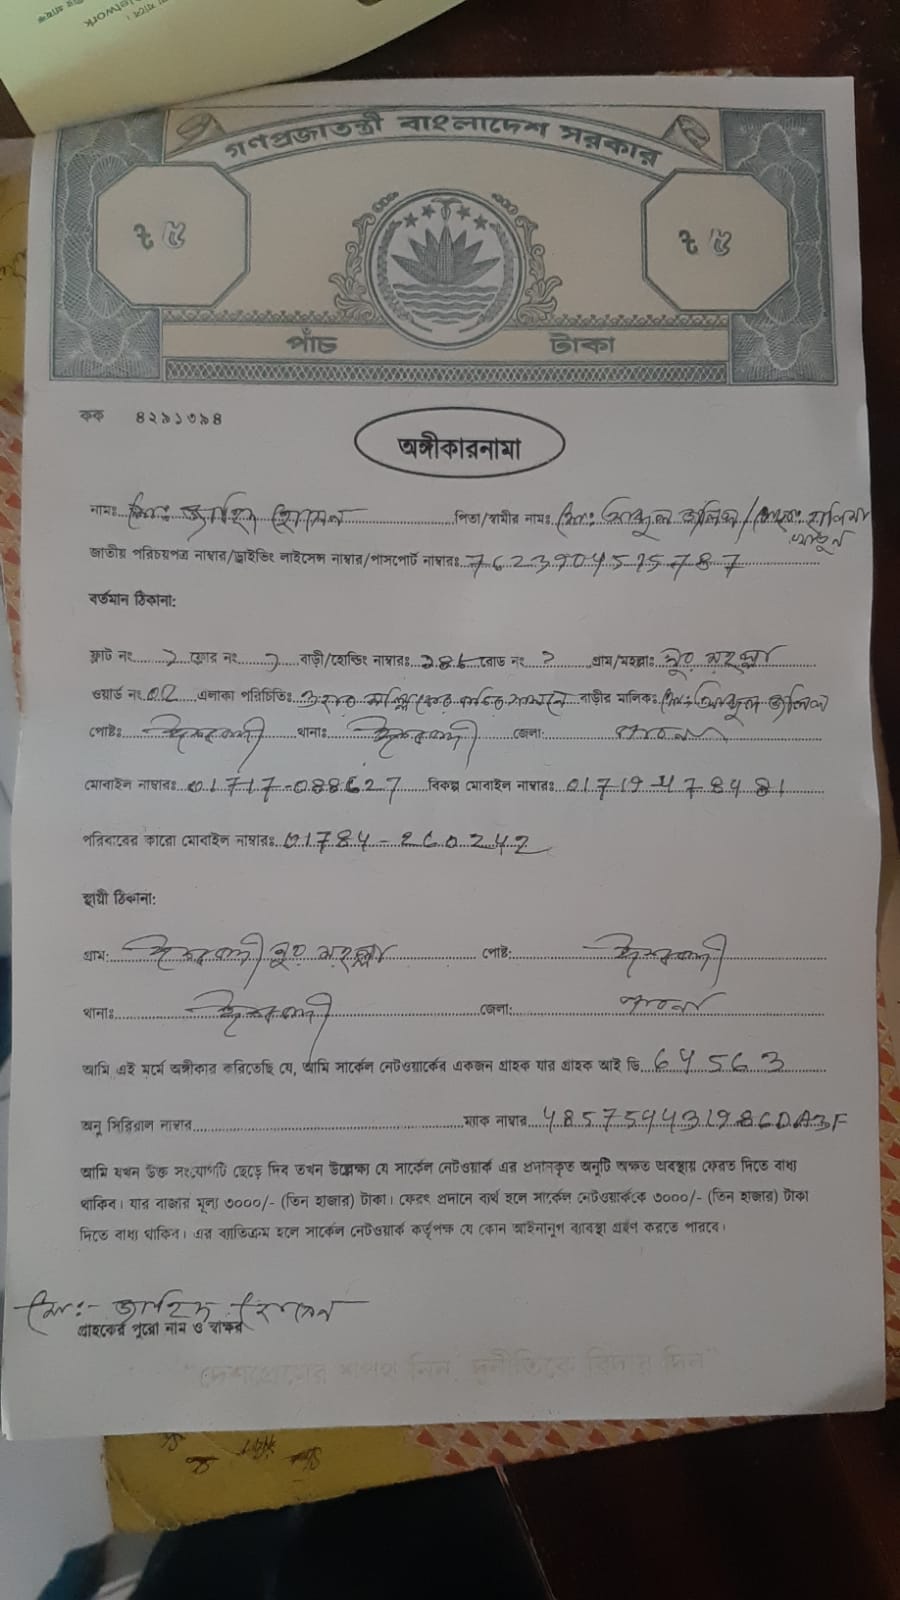 Network
গণপ্রজাতন্ত্রী বাংলাদেশ সরকার
৳ ৫ ৳ ৫
পাঁচ টাকা
কক ৪২৯১৩৯৪
অঙ্গীকারনামা
নামঃ মোঃ জাহিদ হোসেন পিতা/স্বামীর নামঃ মোঃ আব্দুল জলিল / মোছাঃ হালিমা
খাতুন
জাতীয় পরিচয়পত্র নাম্বার/ড্রাইভিং লাইসেন্স নাম্বার/পাসপোর্ট নাম্বারঃ 7623904515787
বর্তমান ঠিকানা:
ফ্লাট নং ফ্লোর নং বাড়ী/হোল্ডিং নাম্বারঃ রোড নং গ্রাম/মহল্লাঃ নুর মহল্লা
ওয়ার্ড নং 02 এলাকা পরিচিতিঃ বাড়ীর মালিকঃ মোঃ আব্দুল জলিল
পোষ্টঃ ঈশ্বরদী থানাঃ ঈশ্বরদী জেলা: পাবনা
মোবাইল নাম্বারঃ 01717-088627 বিকল্প মোবাইল নাম্বারঃ 01719-478481
পরিবারের কারো মোবাইল নাম্বারঃ 01784-260242
স্থায়ী ঠিকানা:
গ্রাম: ঈশ্বরদী নুর মহল্লা পোষ্ট: ঈশ্বরদী
থানাঃ ঈশ্বরদী জেলা: পাবনা
আমি এই মর্মে অঙ্গীকার করিতেছি যে, আমি সার্কেল নেটওয়ার্কের একজন গ্রাহক যার গ্রাহক আই ডি 64563
অনু সিরিয়াল নাম্বার ম্যাক নাম্বার 485754431986DA3F
আমি যখন উক্ত সংযোগটি ছেড়ে দিব তখন উল্লেক্ষ্য যে সার্কেল নেটওয়ার্ক এর প্রদানকৃত অনুটি অক্ষত অবস্থায় ফেরত দিতে বাধ্য
থাকিব। যার বাজার মূল্য ৩০০০/- (তিন হাজার) টাকা। ফেরৎ প্রদানে ব্যর্থ হলে সার্কেল নেটওয়ার্ককে ৩০০০/- (তিন হাজার) টাকা
দিতে বাধ্য থাকিব। এর ব্যতিক্রম হলে সার্কেল নেটওয়ার্ক কর্তৃপক্ষ যে কোন আইনানুগ ব্যবস্থা গ্রহণ করতে পারবে।
মোঃ- জাহিদ হোসেন
গ্রাহকের পুরো নাম ও স্বাক্ষর
"দেশপ্রেমের শপথ নিন, দুর্নীতিকে বিদায় দিন"